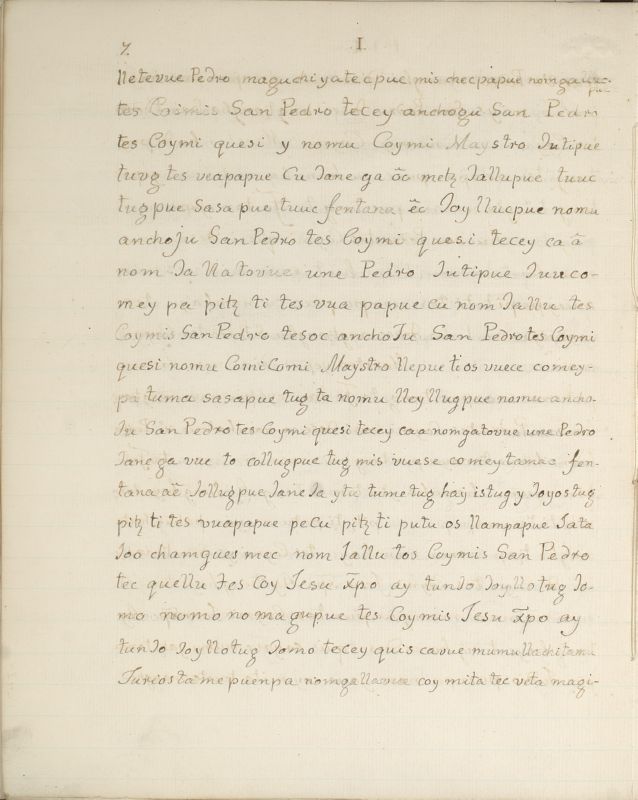 7. I.
Netevue Pedro maguchiyatecpue mis checpapue nomgaux-
pue
tes Coimis San Pedro tecey anchogu San Pedro
tes Coymi quesi y nomu Coymi Maystro Jutipue
tuvg tes veapapue Cu Jane ga õc metz Jallupue tuuc
tug pue sasa pue tuuc fentana ẽc Joy llucpue nomu
anchoJu San Pedro tes Coymi quesi tecey ca ã
nom Ja Natovue une Pedro Jutipue Juuco-
mey pa pitz ti tes vua papue cu nom Jallu tes
Coymis San Pedro tesoc anchoJu San Pedro tes Coymi
quesi nomu Comi Comi Maystro Nepue ti os vuece comey-
pa tuma sasapue tug ta nomu lley llugpue nomu ancho-
Ju San Pedro tes Coymi quesi tecey caa nomgatovue une Pedro
Janega vue to collugpue tug mis vuese comeytamac fen-
tana aẽ Jollugpue JaneJa ytu tumetug hay istug y Joyostug
pitz ti tes vuapapue pecu pitz ti putu os llampapue Jata
Joo chamgues mec nom Jallu tos Coymis San Pedro
tec quellu tes Coy Jesu xp̃o ay tunJo Joyllotug Jo-
mo nomo no magupue tes Coymis Jesu xp̃o ay
tunJo Joyllotug Jomo tecey quis cavue mumullachitamu
Juriostamepuenpa nomgallavue coy mita tec veta magi-